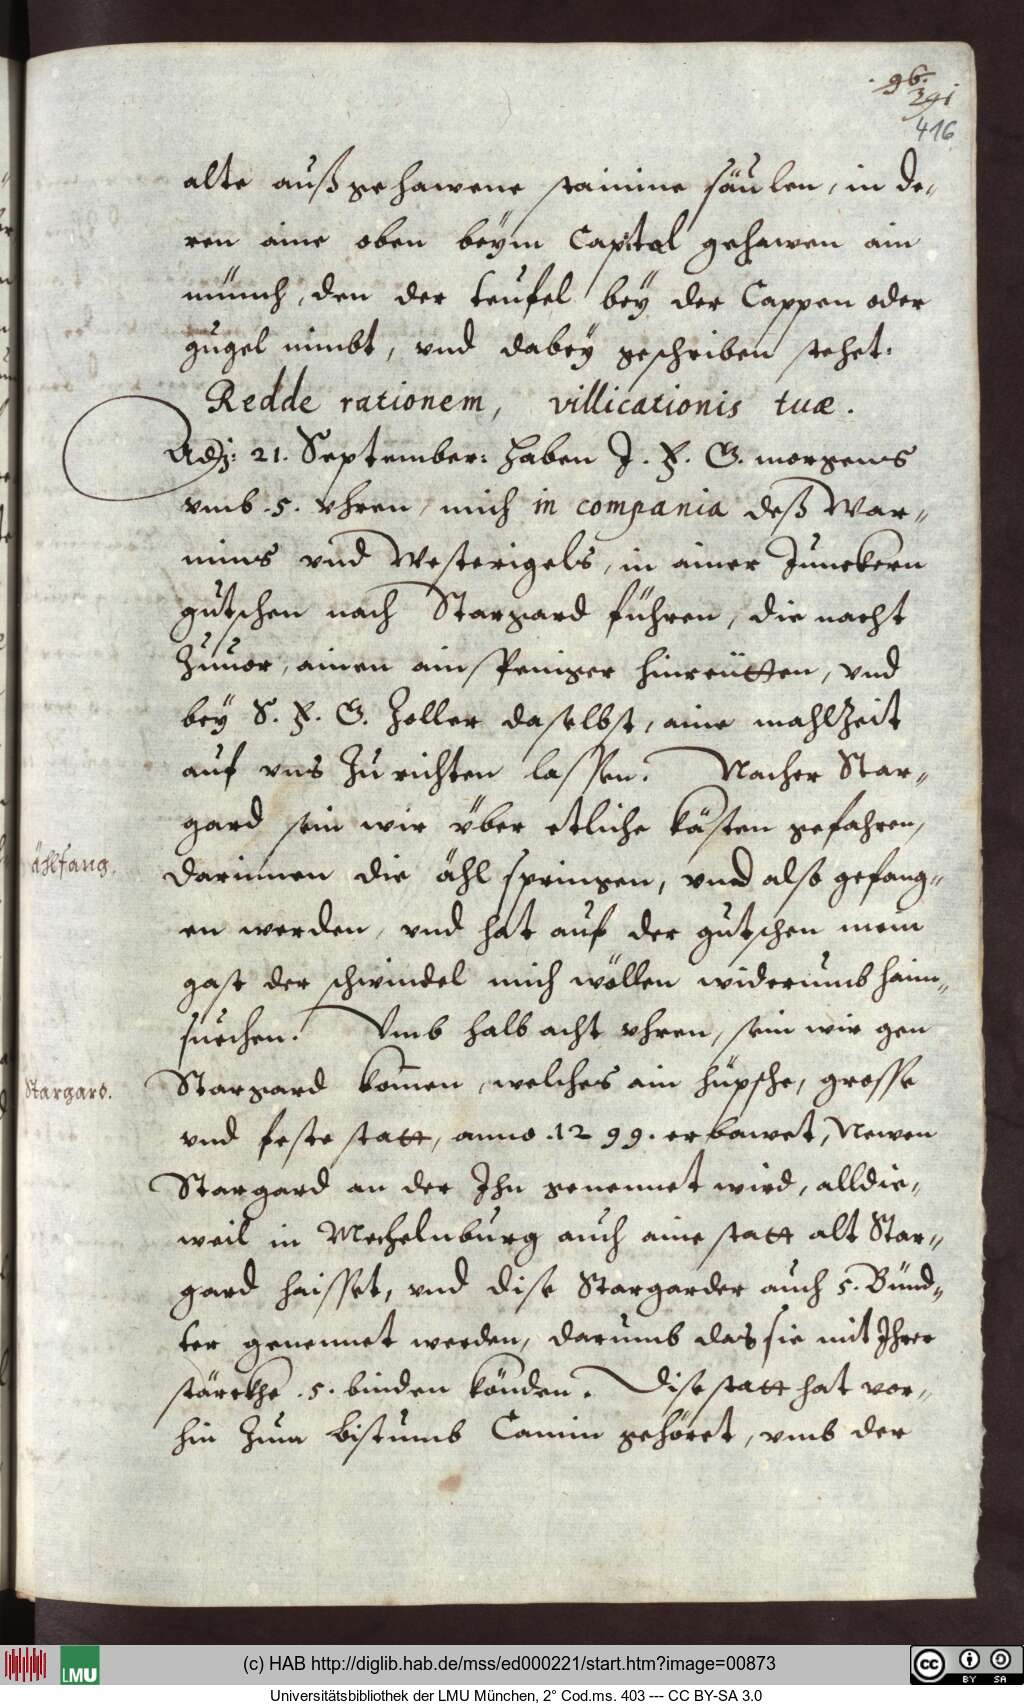 96.
391
416
alte außgehawene stainine säulen, in de-
ren aine oben beÿm Capitol gehawen ain
münch, den der teufel beÿ der Cappen oder
gugel nimbt, vnd dabeÿ geschriben stehet:
Redde rationem, villicationis tuæ.
Adj: 21. September: haben J. F. G. morgens
vmb .5. vhren, mich in compania deß War-
nins vnd Westerigels, in ainer Junckern
gutschen nach Stargard führen, die nacht
zuuor, ainen ainspeniger hinreütten, vnd
beÿ S. F. G. Zoller daselbst, aine mahlzeit
auf vns zurichten lassen. Nacher Star-
gard sein wir über etliche kästen gefahren,
ählfang.
darinnen die ähl springen, vnd also gefang-
en werden, vnd hat auf der gutschen mein
gast der schwindel mich wöllen widerumb haim-
suechen. Vmb halb acht vhren, sein wir gen
Stargard.
Stargard kommen, welches ain hüpsche, grosse
vnd feste statt, anno .1299. erbawet, Newen
Stargard an der Ihn genennet wird, alldie-
weil in Mechelnburg auch aine statt alt Star-
gard haisset, vnd dise Stargarder auch 5. Bünd-
ter genennet werden, darumb das sie mit Ihrer
stärckhe .5. binden könden. Dise statt hat vor-
hin zum bistumb Camin gehöret, vmb der
(c) HAB http://diglib.hab.de/mss/ed000221/start.htm?image=00873
LMU
cc BY SA
Universitätsbibliothek der LMU München, 2° Cod.ms. 403 --- CC BY-SA 3.0